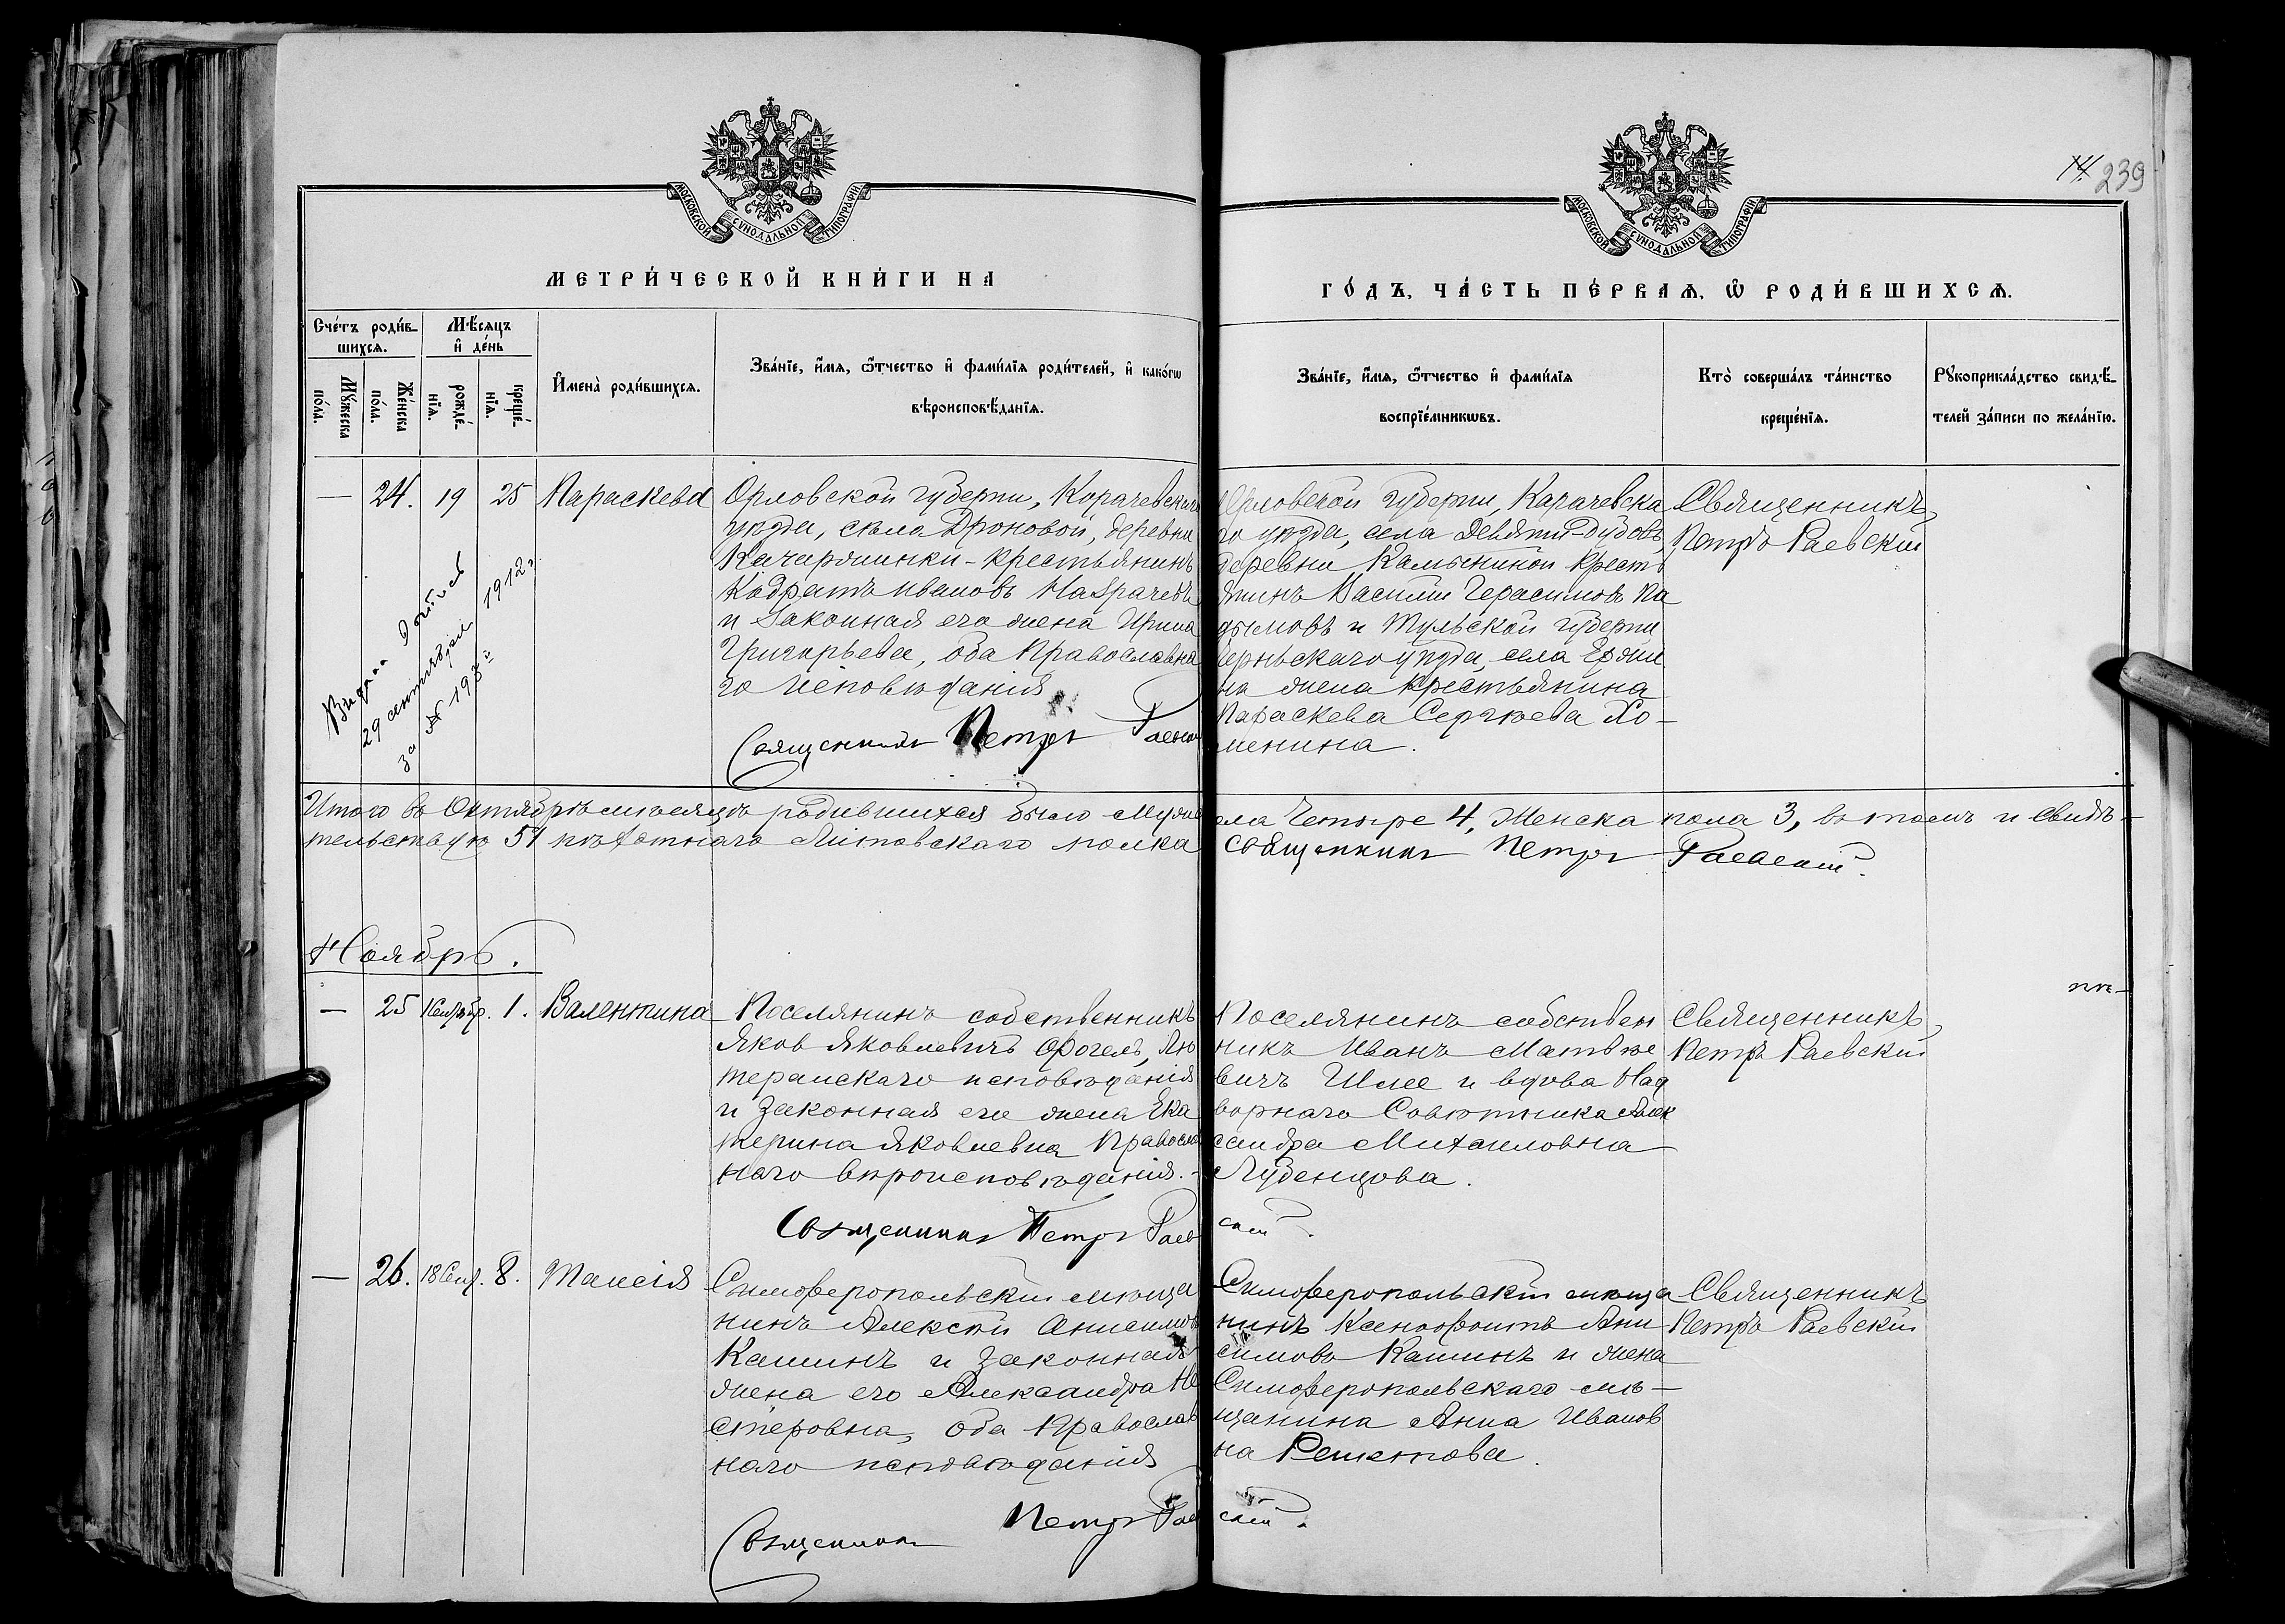 14. 239
МОСКОВСКОЙ СѴНОДАЛЬНОЙ ТИПОГРАФІИ
МОСКОВСКОЙ СѴНОДАЛЬНОЙ ТИПОГРАФІИ
МЕТРИ́ЧЕСКОЙ КНИ́ГИ НА
ГО́ДЪ, ЧА́СТЬ ПЕ́РВАѦ, Ѽ РОДИ́ВШИХСѦ.
Сче́тъ роди́в-
шихсѧ.
Мꙋ́жеска
по́ла.
Же́нска
по́ла.
Мѣ́сѧцъ
и҆ де́нь
рожде́-
нїѧ.
креще́-
нїѧ.
И҆мена̀ роди́вшихсѧ.
Зва́нїе, и҆́мѧ, ѻ҆́тчество и҆ фами́лїѧ роди́телей, и҆ како́гѡ
вѣроисповѣ́данїѧ.
Зва́нїе, и҆́мѧ, ѻ҆́тчество и҆ фами́лїѧ
воспрїе́мникѡвъ.
Кто̀ соверша́лъ та́инство
креще́нїѧ.
Рꙋкоприкла́дство свидѣ́-
телей за́писи по жела́нїю.
— 24. 19 25 Параскева
Орловской губерни, Корачевскаго
уѣзда, села Дроновой, деревни
крестьянинъ
Кодратъ Ивановъ
и Законная его жена Ирина
Григорьева, оба Православна
го Исповѣданія
Священникъ Петръ Раевскій
Орловской Губерни, Карачевска
го уѣзда, села Девяти-Дубовъ,
деревни Камыниной Кресть
янинъ Василій Герасимовъ Па
дымовъ и Тульской Губерни
Черньскаго уѣзда, села
на жена Крестьянина
Параскева Сергѣева Хо-
менина.
Священникъ
Петръ Раевскій
29 сентября 1912 г.
за №
Итого въ Октябрѣ мѣсяцѣ родившихся было Муже
ска Четыре 4, Женска пола 3, въ томъ и свидѣ-
тельствую 51 пѣхотнаго Литовскаго полка Священникъ Петръ Раевскій.
Ноябрь.
— 25 1. Валентина
Поселянинъ собственникъ
Яковъ Яковлевичъ Фогель, Лю
теранскаго исповѣданія
и Законная его жена Ека
терина Яковлевна Правосла
наго вѣроисповѣданія.-
Священникъ Петръ Раев
скій.
Поселянинъ собствен
никъ Иванъ Матвѣе
вичъ Шлее и вдова Над
ворнаго Совѣтника Алек
сандра Михаиловна
Лубенцова.
Священникъ
Петръ Раевскій
— 26. 18 Сент. 8. Таисія
Симферопольскій мѣща
нинъ Алексѣй Анисимовъ
Кашинъ и Законная
жена его Александра Не
стеровна, оба Православ
наго исповѣданія
Священникъ Петръ Раев
скій.
Симферопольскій мѣща
нинъ Ксенофонтъ Ани
симовъ Кашинъ и жена
Симферопольскаго мѣ-
щанина Анна Иванов
на Решетова.
Священникъ
Петръ Раевскій